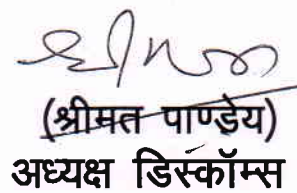 (श्रीमत पाण्डेय)
अध्यक्ष डिस्कॉम्स